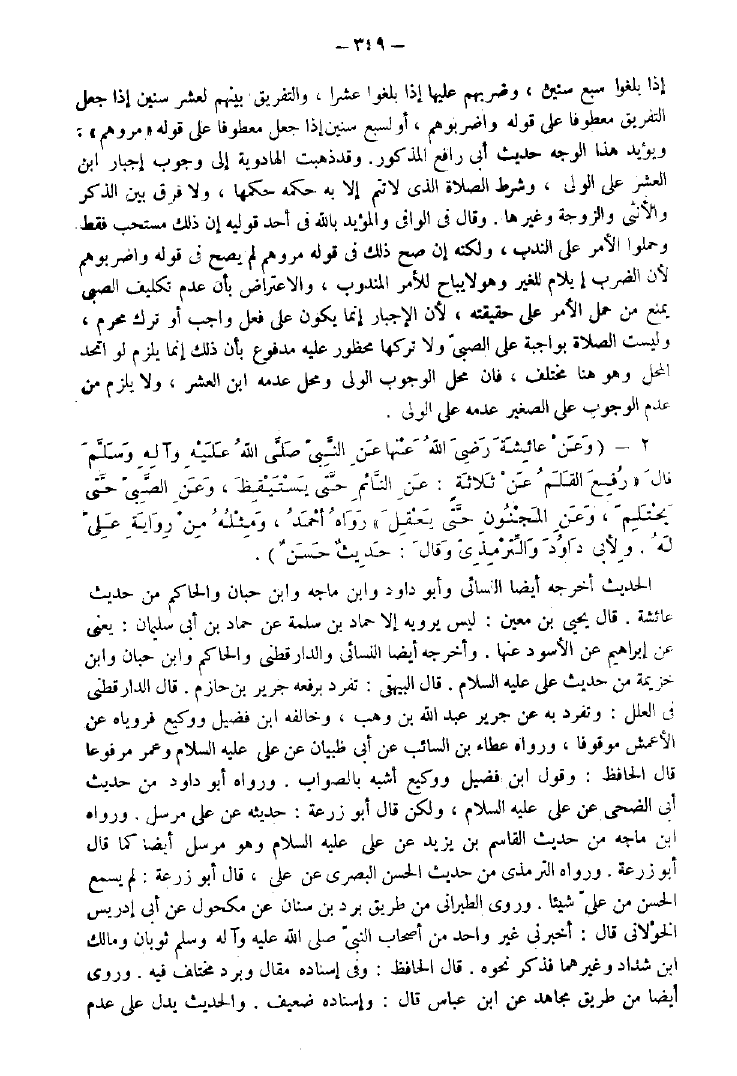 – ٣٤٩ –
إذا بلغوا سبع سنين ، وضربهم عليها إذا بلغوا عشرا ، والتفريق بينهم لعشر سنين إذا جعل
التفريق معطوفا على قوله واضربوهم ، أو لسبع سنين إذا جعل معطوفا على قوله « مروهم » :
ويؤيد هذا الوجه حديث أبى رافع المذكور. وقد ذهبت الهادوية إلى وجوب إجبار ابن
العشر على الولى ، وشرط الصلاة الذى لا تتم إلا به حكمه حكمها ، ولا فرق بين الذكر
والأنثى والزوجة وغيرها . وقال فى الوافى والمؤيد بالله فى أحد قوليه إن ذلك مستحب فقط
وحملوا الأمر على الندب ، ولكنه إن صح ذلك فى قوله مروهم لم يصح فى قوله واضربوهم
لأن الضرب إيلام للغير وهو لا يباح للأمر المندوب ، والاعتراض بأن عدم تكليف الصبى
يمنع من حمل الأمر على حقيقته ، لأن الإجبار إنما يكون على فعل واجب أو ترك محرم ،
وليست الصلاة بواجبة على الصبىّ ولا تركها محظور عليه مدفوع بأن ذلك إنما يلزم لو اتحد
المحل وهو هنا مختلف ، فان محل الوجوب الولى ومحل عدمه ابن العشر ، ولا يلزم من
عدم الوجوب على الصغير عدمه على الولى .
٢ – ( وَعَنْ عائِشَةَ رَضِىَ اللهُ عَنْها عَنِ النَّبِىّ صَلَّى اللهُ عَلَيْهِ وآلِهِ وَسَلَّمَ
قالَ « رُفِعَ القَلَمُ عَنْ ثَلاثَةٍ : عَنِ النَّائمِ حَتَّى يَسْتَيْقِظَ ، وَعَنِ الصَّبِىّ حَتَّى
يَحْتَلِمَ ، وَعَنِ المَجْنُونِ حَتَّى يَعْقِلَ » رَوَاهُ أحْمَدُ ، وَمِثْلُهُ مِنْ رِوَايَةِ عَلىّ
لَهُ . ولأبى دَاوُدَ والتِّرْمِذِىّ وَقالَ : حَدِيثٌ حَسَنٌ ) .
الحديث أخرجه أيضا النسائى وأبو داود وابن ماجه وابن حبان والحاكم من حديث
عائشة . قال يحيى بن معين : ليس يرويه إلا حماد بن سلمة عن حماد بن أبى سليمان : يعنى
عن إبراهيم عن الأسود عنها . وأخرجه أيضا النسائى والدارقطنى والحاكم وابن حبان وابن
خزيمة من حديث على عليه السلام . قال البيهقى : تفرد برفعه جرير بن حازم . قال الدارقطنى
فى العلل : وتفرد به عن جرير عبد الله بن وهب ، وخالفه ابن فضيل ووكيع فروياه عن
الأعمش موقوفا ، ورواه عطاء بن السائب عن أبى ظبيان عن على عليه السلام وعمر مرفوعا
قال الحافظ : وقول ابن فضيل ووكيع أشبه بالصواب . ورواه أبو داود من حديث
أبى الضحى عن على عليه السلام ، ولكن قال أبو زرعة : حديثه عن على مرسل . ورواه
ابن ماجه من حديث القاسم بن يزيد عن على عليه السلام وهو مرسل أيضا كما قال
أبو زرعة . ورواه الترمذى من حديث الحسن البصرى عن على ، قال أبو زرعة : لم يسمع
الحسن من علىّ شيئا . وروى الطبرانى من طريق برد بن سنان عن مكحول عن أبى إدريس
الخولانى قال : أخبرنى غير واحد من أصحاب النبىّ صلى الله عليه وآله وسلم ثوبان ومالك
ابن شداد وغيرهما فذكر نحوه . قال الحافظ : وفى إسناده مقال وبرد مختلف فيه . وروى
أيضا من طريق مجاهد عن ابن عباس قال : وإسناده ضعيف . والحديث يدل على عدم